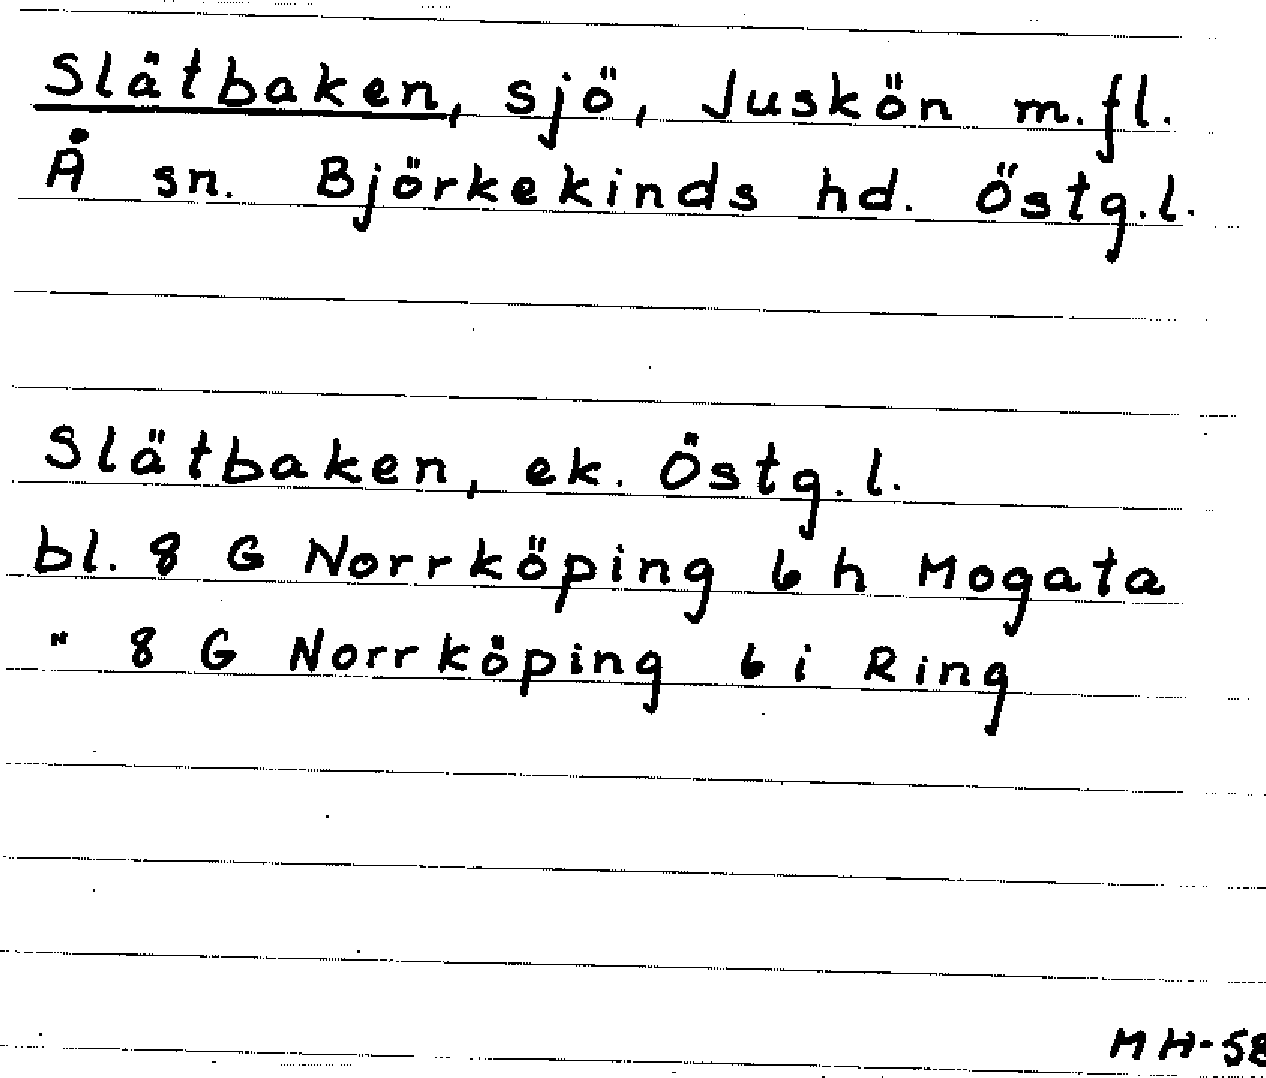 Slätbaken, sjö, Juskön m.fl.
Å sn. Björkekinds hd. Östg.l.
Slätbaken, ek. Östg.l.
bl. 8 G Norrköping 6 h Mogata
" 8 G Norrköping 6 i Ring
MH-58